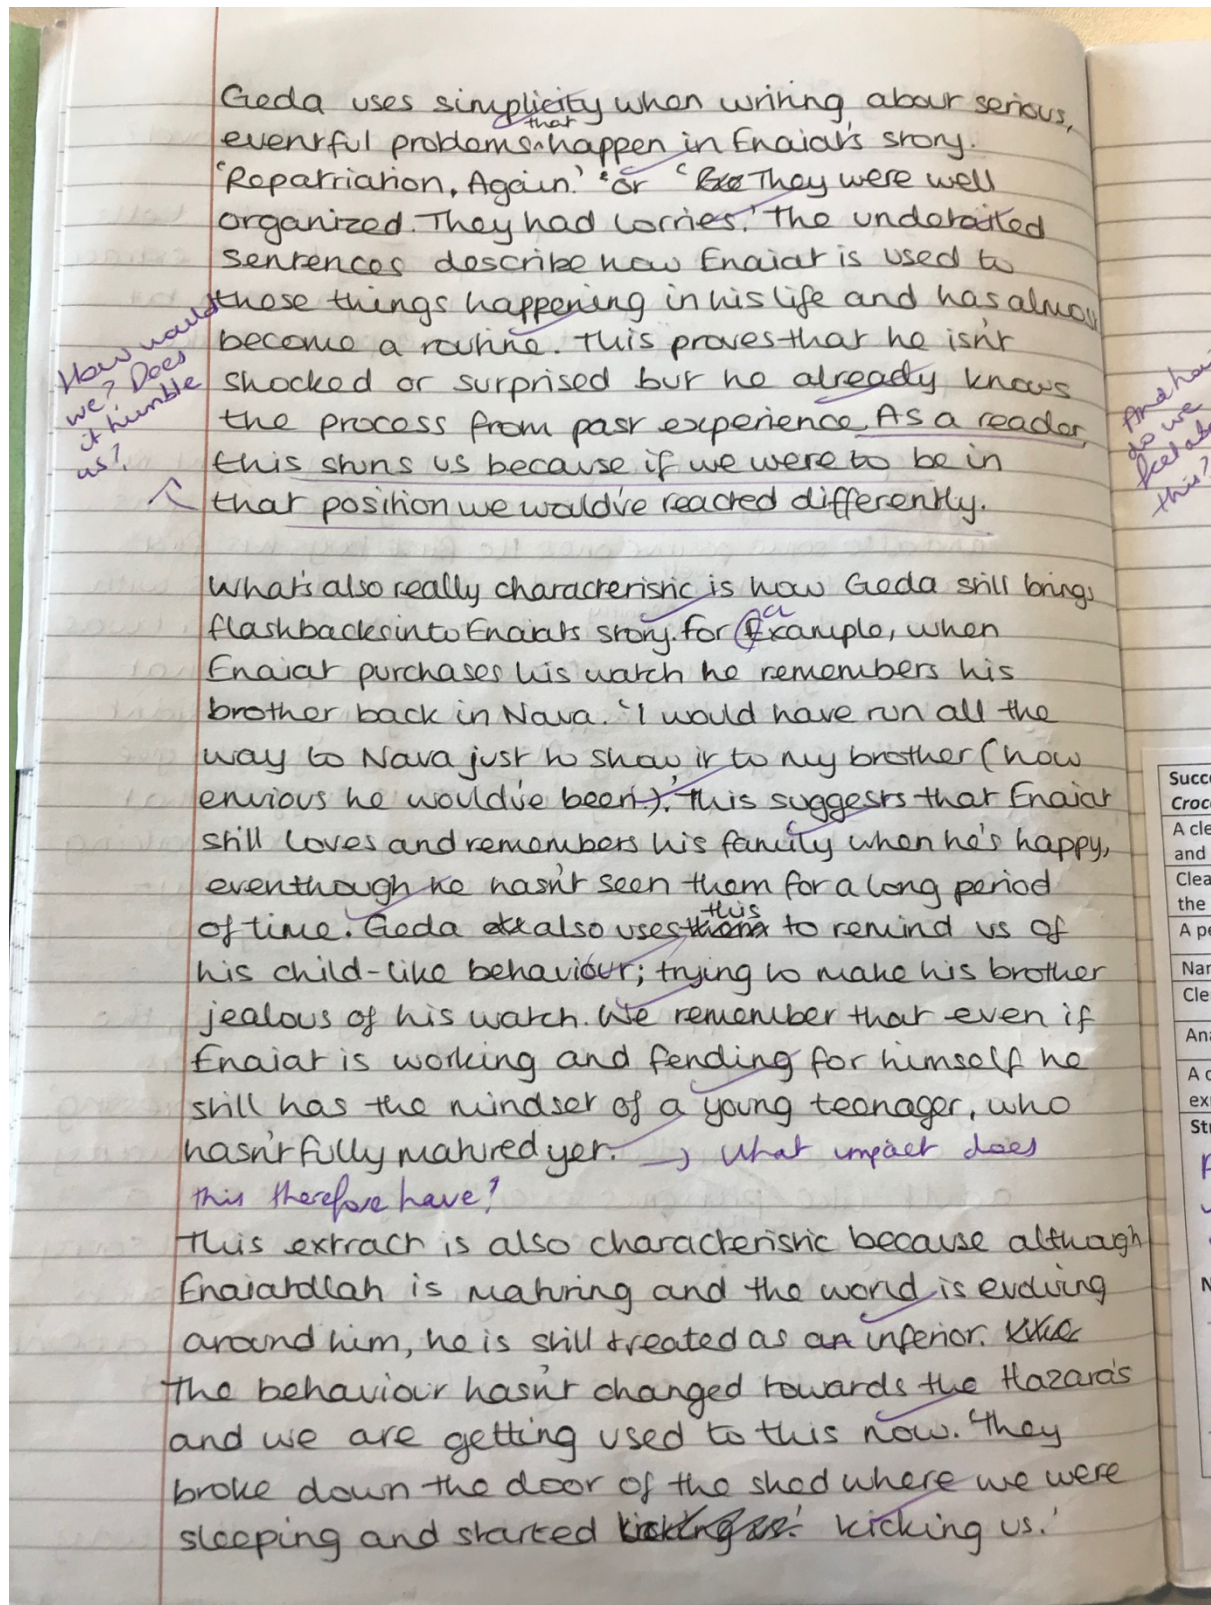 Geda uses simplicity when writing about serious,
that
eventful problems ^ happen in Enaiat's story.
'Repatriation, Again.' or 'They were well
organized. They had lorries.' The undetailed
sentences describe how Enaiat is used to
these things happening in his life and has almost
become a routine. This proves that he isn't
shocked or surprised but he already knows
the process from past experience. As a reader,
this stuns us because if we were to be in
that position we would've reacted differently.
How would
we? Does
it humble
us?
And how
do we
feel ab
this?
What's also really characteristic is how Geda still brings
flashbacks into Enaiat's story. For Example, when
e
Enaiat purchases his watch he remembers his
brother back in Nava. 'I would have run all the
way to Nava just to show it to my brother (how
envious he would've been).' This suggests that Enaiat
still loves and remembers his family when he's happy,
eventhough he hasn't seen them for a long period
this
of time. Geda also uses to remind us of
his child-like behaviour; trying to make his brother
jealous of his watch. We remember that even if
Enaiat is working and fending for himself he
still has the mindset of a young teenager, who
hasn't fully matured yet. → What impact does
this therefore have?
This extract is also characteristic because although
Enaiatollah is maturing and the world is evolving
around him, he is still treated as an inferior.
The behaviour hasn't changed towards the Hazara's
and we are getting used to this now. 'They
broke down the door of the shed where we were
sleeping and started kicking us.'
Succe
Croc
A cle
and
Clea
the
A pe
Nar
Cle
Ana
A c
ex
St